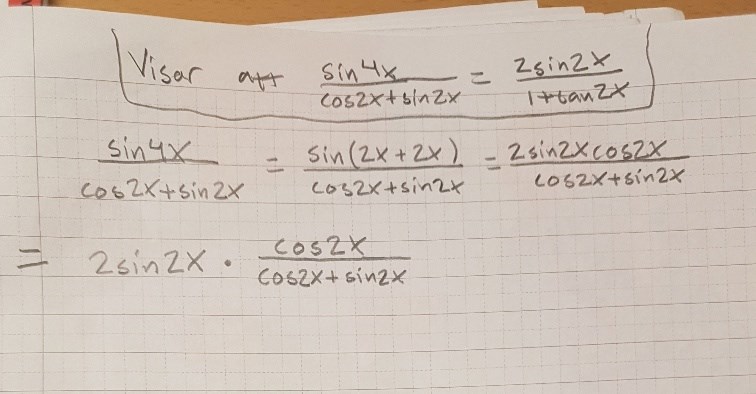 Visar att sin4x/cos2x+sin2x = 2sin2x/1+tan2x
sin4x/cos2x+sin2x = sin(2x+2x)/cos2x+sin2x = 2sin2xcos2x/cos2x+sin2x
= 2sin2x · cos2x/cos2x+sin2x